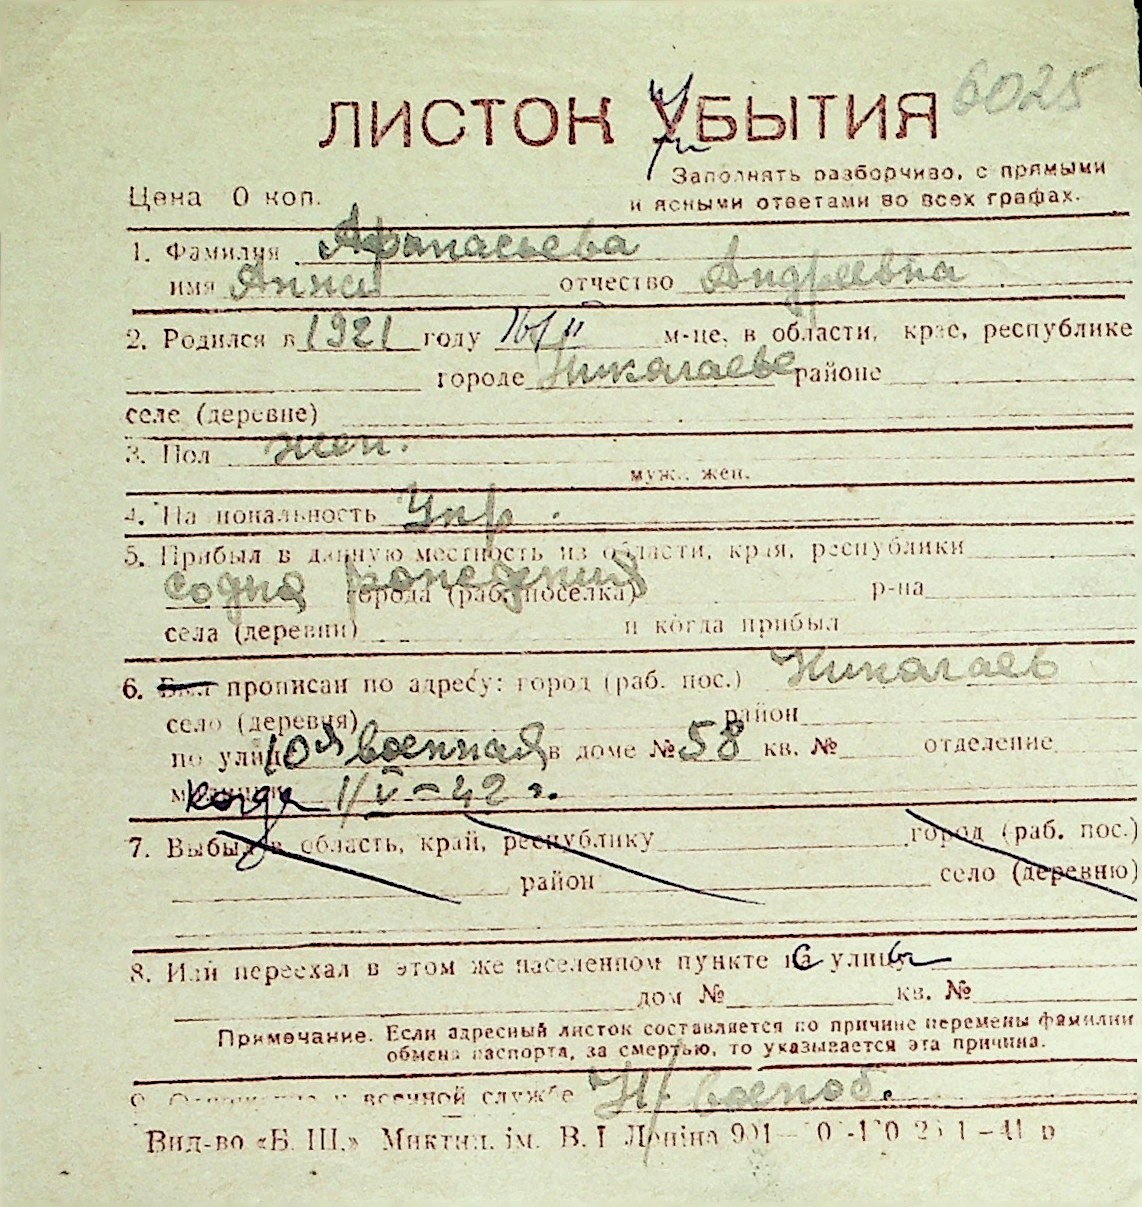 6025
ЛИСТОК УБЫТИЯ
Заполнять разборчиво, с прямыми
Цена 0 коп. и ясными ответами во всех графах.
1. Фамилия Афанасьева
имя Анна отчество Андреевна
2. Родился в 1921 году м-це, в области, крае, республике
городе Николаеве районе
селе (деревне)
3. Пол жен.
муж., жен.
4. Национальность Укр.
5. Прибыл в данную местность из области, края, республики
со дня рождения города (раб. поселка) р-на
села (деревни) и когда прибыл
6. Был прописан по адресу: город (раб. пос.) Николаев
село (деревня) район
по улице 10я военная в доме № 58 кв. № отделение
когда 1/V-42 г.
7. Выбыл в область, край, республику город (раб. пос.)
район село (деревню)
8. Или переехал в этом же населенном пункте с улицы
дом № кв. №
Примечание. Если адресный листок составляется по причине перемены фамилии
обмена паспорта, за смертью, то указывается эта причина.
9. Отношение к военной службе Н/военоб.
Вид-во «Б. Ш.» Миктип. ім. В. І Леніна